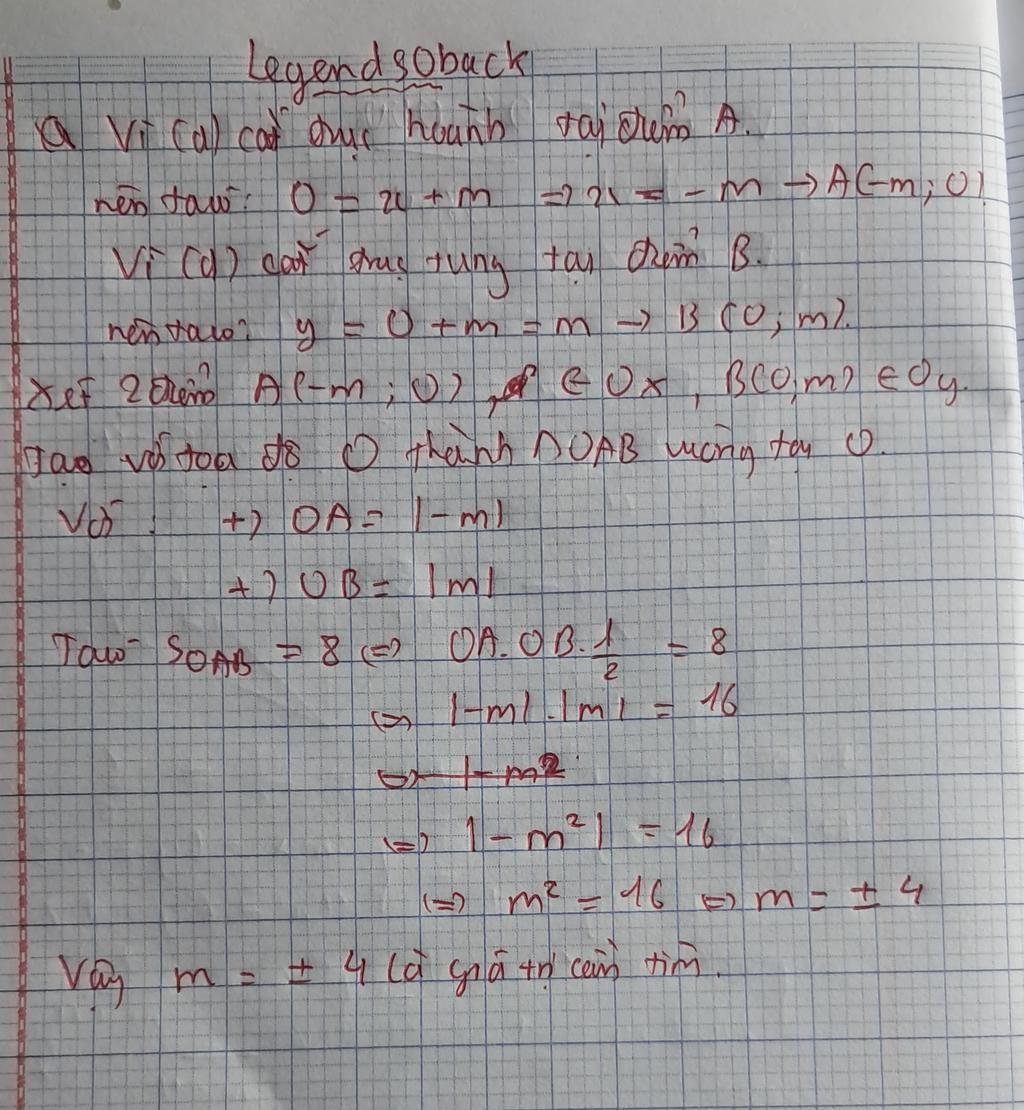 Legendsoback
a Vì (d) cắt trục hoành tại điểm A.
nên ta có: 0 = x + m => x = - m → A(-m; 0)
Vì (d) cắt trục tung tại điểm B.
nên ta có: y = 0 + m = m → B (0; m).
Xét 2 điểm A(-m; 0), ∈ Ox, B(0; m) ∈ Oy.
Tạo với tọa độ O thành ΔOAB vuông tại O.
Với: +) OA = |-m|
+) OB = |m|
Ta có S_OAB = 8 <=> OA.OB.1/2 = 8
<=> |-m|.|m| = 16
<=> |-m²
<=> |-m²| = 16
<=> m² = 16 <=> m = ± 4
Vậy m = ± 4 là giá trị cần tìm.